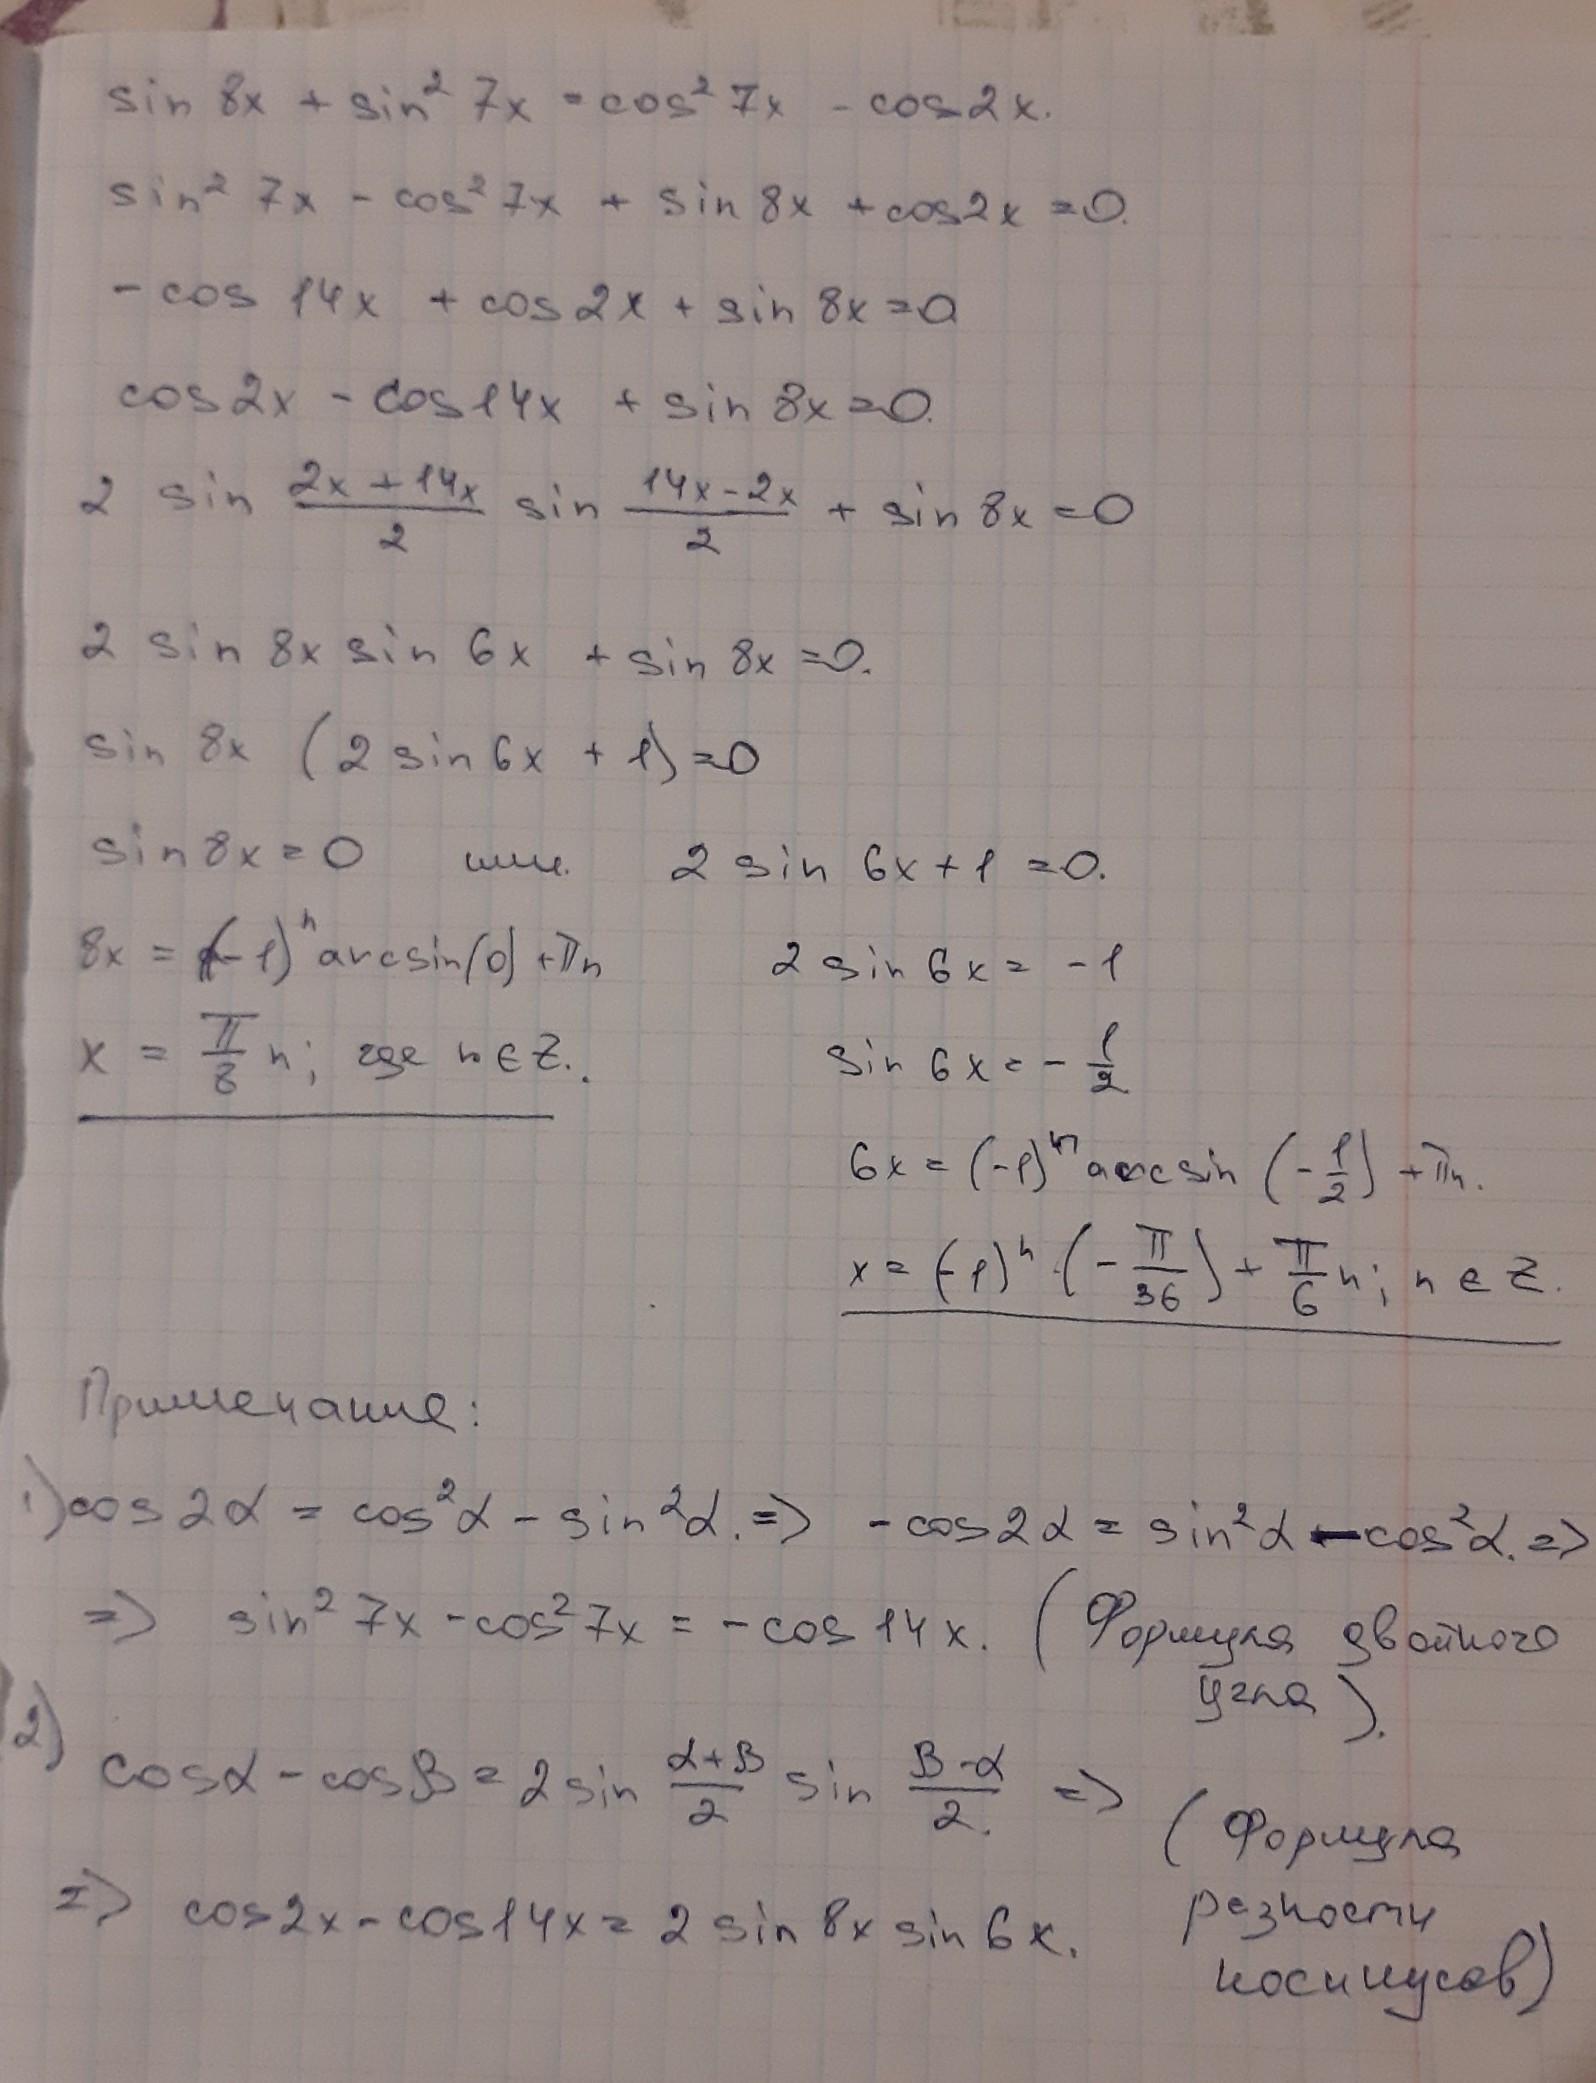 sin 8x + sin² 7x = cos² 7x - cos 2x.
sin² 7x - cos² 7x + sin 8x + cos 2x = 0.
- cos 14x + cos 2x + sin 8x = 0
cos 2x - cos 14x + sin 8x = 0.
2 sin (2x + 14x)/2 sin (14x - 2x)/2 + sin 8x = 0
2 sin 8x sin 6x + sin 8x = 0.
sin 8x (2 sin 6x + 1) = 0
sin 8x = 0 или 2 sin 6x + 1 = 0.
8x = (-1)ⁿ arcsin(0) + πn 2 sin 6x = -1
x = π/8 n; где n ∈ Z. sin 6x = - 1/2
6x = (-1)ⁿ arcsin (-1/2) + πn.
x = (-1)ⁿ · (-π/36) + π/6 n; n ∈ Z.
Примечание:
1) cos 2α = cos² α - sin² α. => - cos 2α = sin² α - cos² α. =>
=> sin² 7x - cos² 7x = - cos 14x. (Формула двойного
угла).
2) cos α - cos β = 2 sin (α+β)/2 sin (β-α)/2. =>
(Формула
разности
косинусов)
=> cos 2x - cos 14x = 2 sin 8x sin 6x.